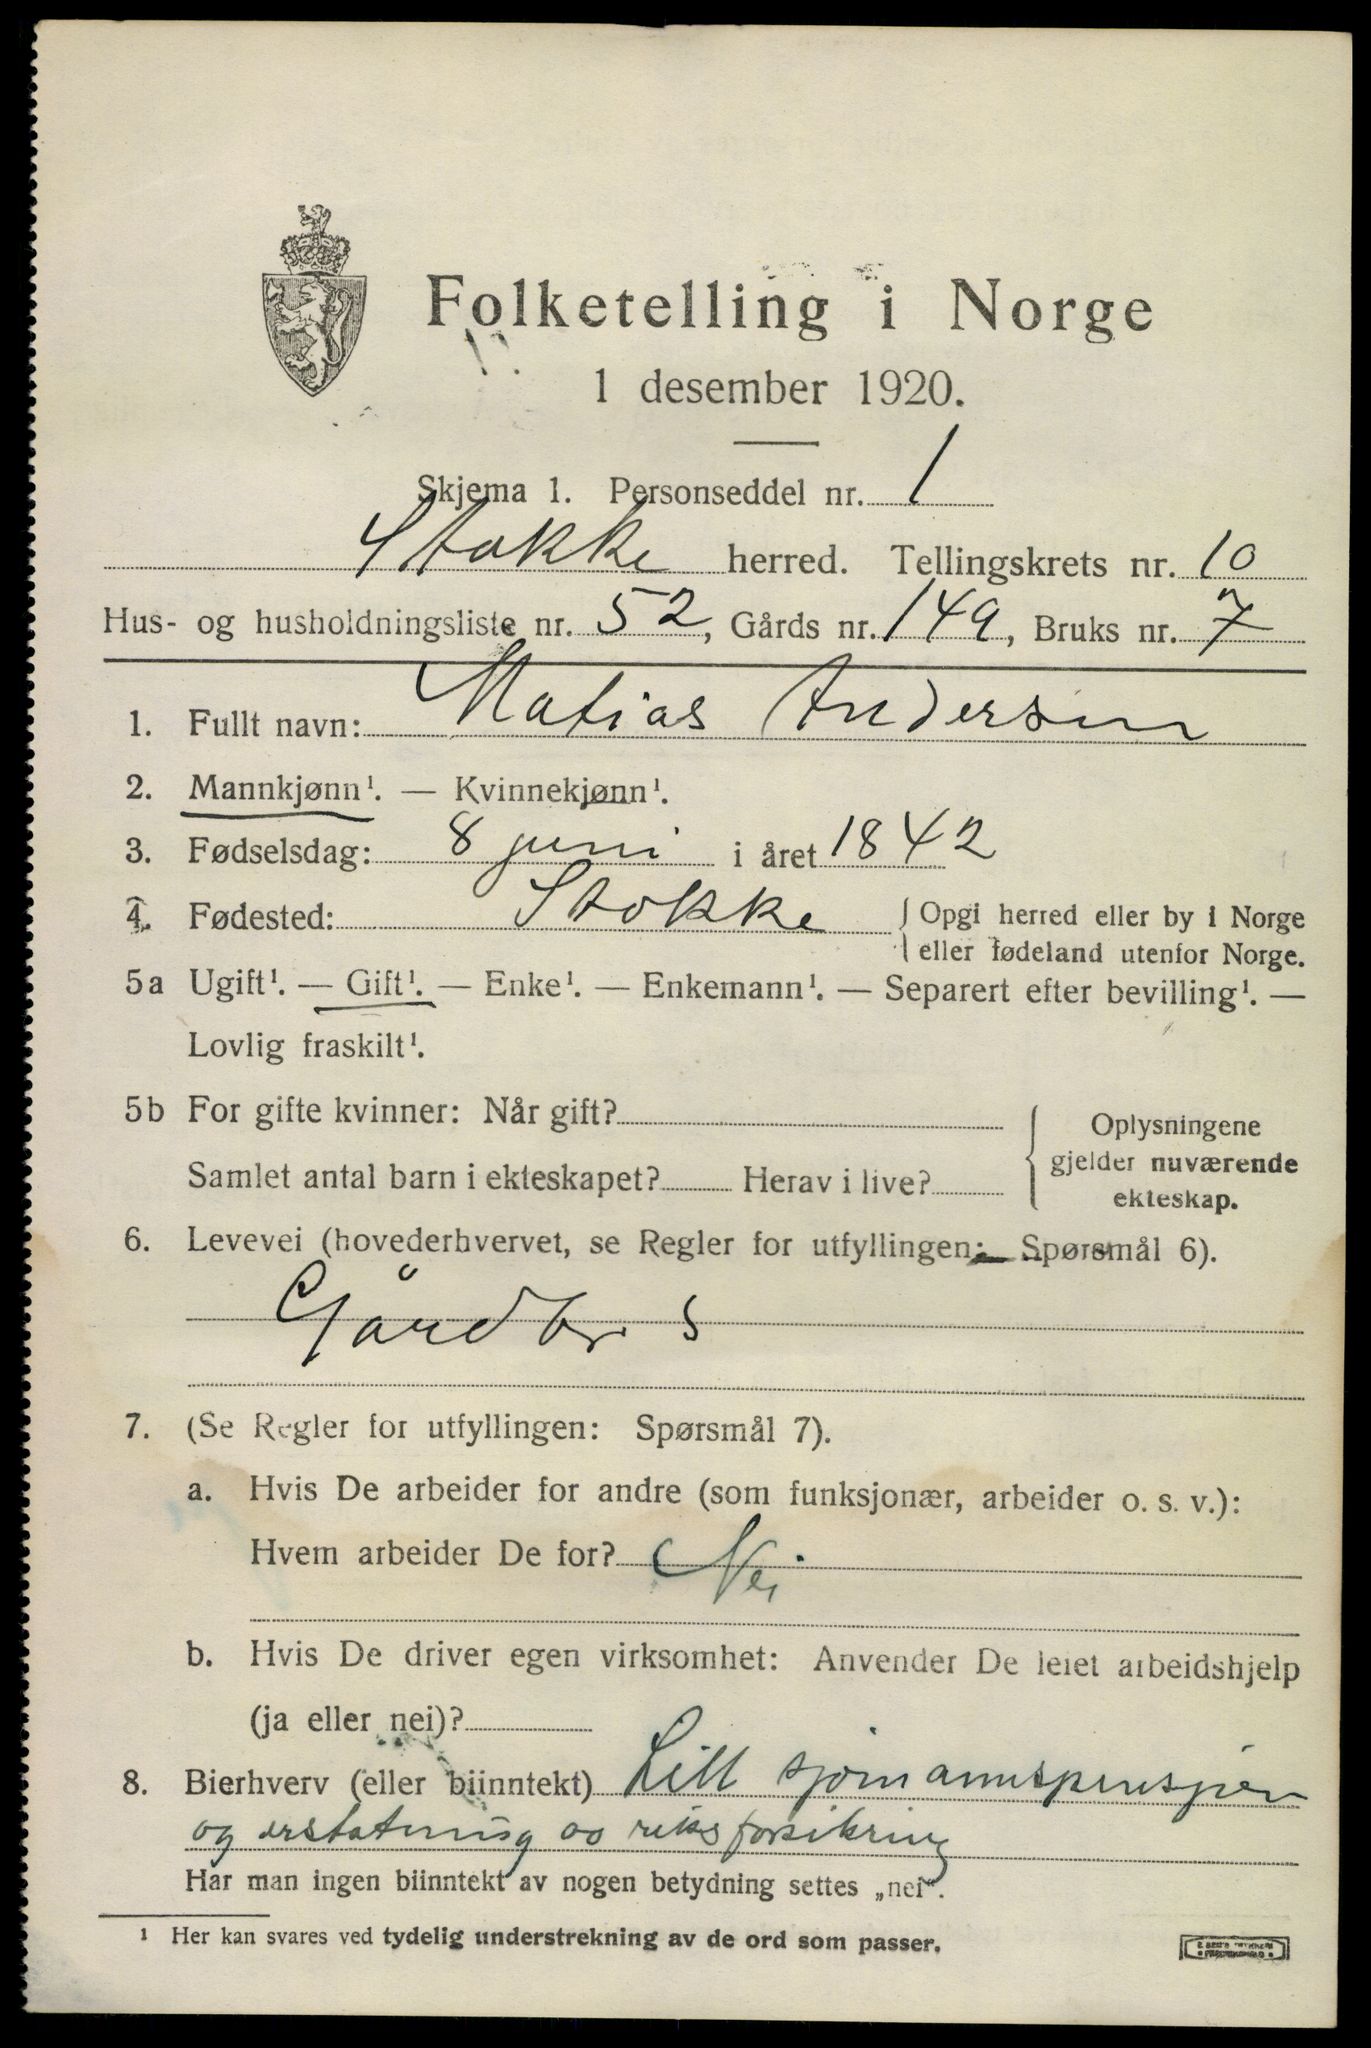 Folketelling i Norge
1 desember 1920.
Skjema 1. Personseddel nr. 1
Stokke herred. Tellingskrets nr. 10
Hus- og husholdningsliste nr. 52, Gårds nr. 149, Bruks nr. 7
1. Fullt navn: Matias Andersen
2. Mannkjønn¹. — Kvinnekjønn¹.
3. Fødselsdag: 8 juni i året 1842
4. Fødested: Stokke { Opgi herred eller by i Norge
eller fødeland utenfor Norge.
5a Ugift¹. — Gift¹. — Enke¹. — Enkemann¹. — Separert efter bevilling¹. —
Lovlig fraskilt¹.
5b For gifte kvinner: Når gift?
Samlet antal barn i ekteskapet? Herav i live?
{ Oplysningene
gjelder nuværende
ekteskap.
6. Levevei (hovederhvervet, se Regler for utfyllingen: Spørsmål 6).
Gårdbr S
7. (Se Regler for utfyllingen: Spørsmål 7).
a. Hvis De arbeider for andre (som funksjonær, arbeider o. s. v.):
Hvem arbeider De for? Nei
b. Hvis De driver egen virksomhet: Anvender De leiet arbeidshjelp
(ja eller nei)?
8. Bierhverv (eller biinntekt) Litt sjømannspensjon
og erstatning av riksforsikring
Har man ingen biinntekt av nogen betydning settes „nei“.
¹ Her kan svares ved tydelig understrekning av de ord som passer.